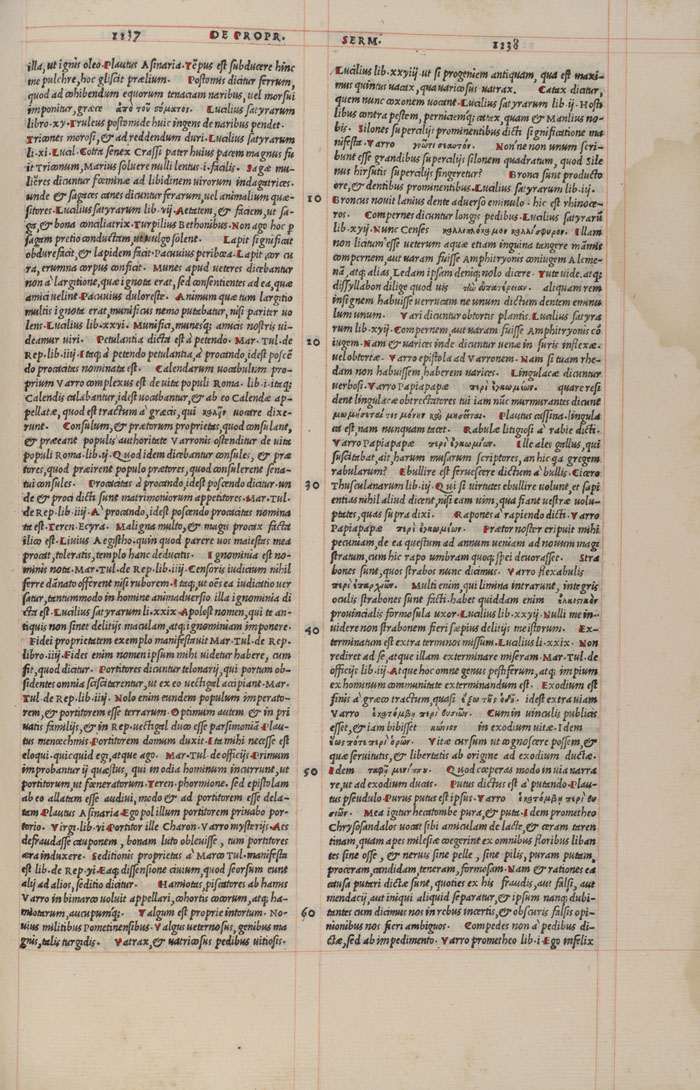 1237 DE PROPR.
illa, ut ignis oleo. Plautus Asinaria. Tẽpus est subducere hinc
me pulchre, hoc gliscit prælium. Postomis dicitur ferrum,
quod ad cohibendum equorum tenaciam naribus, uel morsui
imponitur, græce ἀπὸ τοῦ στόματος. Lucilius satyrarum
libro.xy. Truleus postomide huic ingens de naribus pendet.
Triones morosi, & ad reddendum duri. Lucilius satyrarum
li.xi. Lucil. Cotta senex Crassi pater huius pacem magnus fu
it Trionum, Marius soluere nulli lentus.i.facilis. Sagæ mu-
lieres dicuntur fœminæ ad libidinem uirorum indagatrices.
unde & sagaces canes dicuntur ferarum, uel animalium quæ-
sitores. Lucilius satyrarum lib.vij. Aetatem, & faciem, ut sa-
ga, & bona conciliatrix. Turpilius Bethonibus. Non ago hoc p
sagam pretio conductam, ut uulgo solent. Lapit significat
obdurefacit, & lapidem facit. Pacuuius peribœa. Lapit cor cu
ra, erumna corpus conficit. Munes apud ueteres dicebantur
non à largitione, quæ ignota erat, sed consentientes ad ea, quæ
amici uelint. Pacuuius duloreste. Animum quæ tum largitio
multis ignota erat, munificus nemo putabatur, nisi pariter uo
lens. Lucilius lib.xxvi. Munifici, munesq; amicis nostris ui-
deamur uiri. Petulantia dicta est à petendo. Mar. Tul. de
Rep. lib.iiij. Itaq; à petendo petulantia, à procando, idest poscẽ
do procacitas nominata est. Calendarum uocabulum pro-
prium Varro complexus est de uita populi Roma. lib.i. itaq;
Calendis calabantur, idest uocabantur, & ab eo Calendæ ap-
pellatæ, quod est tractum à græcis, qui καλῆιν uocare dixe-
runt. Consulum, & prætorum proprietas, quod consulant,
& præeant populis authoritate Varronis ostenditur de uita
populi Roma. lib.ij. Quod idem dicebantur consules, & præ
tores, quod præirent populo prætores, quod consulerent sena-
tui consules. Procacitas à procando, idest poscendo dicitur. un
de & proci dicti sunt matrimoniorum appetitores. Mar. Tul.
de Rep. lib.iiij. A procando, idest poscendo procacitas nomina
ta est. Teren. Ecyra. Maligna multo, & magis procax facta
ilico est. Liuius Aegistho. quin quod parere uos maiestas mea
procat, toleratis, templo hanc deducitis. Ignominia est no-
minis nota. Mar. Tul. de Rep. lib.iiij. Censoris iudicium nihil
ferre dãnato offerent nisi ruborem. Itaq; ut oẽs ea iudicatio uer
satur, tantummodo in homine animaduersio illa ignominia di
cta est. Lucilius satyrarum li.xxix. Apolost nomen, qui te an-
tiquis non sinet delitijs maculam, atq; ignominiam imponere.
Fidei proprietatem exemplo manifestauit Mar. Tul. de Rep.
libro.iiij. Fides enim nomen ipsum mihi uidetur habere, cum
fit, quod dicitur. Portitores dicuntur telonarij, qui portum ob-
sidentes omnia sciscitarentur, ut ex eo uectigal accipiant. Mar.
Tul. de Rep. lib.iiij. Nolo enim eundem populum imperato-
rem, & portitorem esse terrarum. Optimum autem & in pri
uatis familijs, & in Rep. uectigal duco esse parsimoniã. Plau-
tus menœchmis. Portitorem domum duxit. Ita mihi necesse est
eloqui. quicquid egi, atque ago. Mar. Tul. de officijs. Primum
improbantur ij quæstus, qui in odia hominum incurrunt, ut
portitorum, ut fœneratorum. Teren. phormione. sed epistolam
ab eo allatam esse audiui, modo & ad portitorem esse dela-
tam. Plautus Asinaria. Ego pol illum portitorem priuabo por-
torio. Virg. lib.vi. Portitor ille Charon. Varro mysterijs. Aes
defraudasse cauponem, bonam luto obleuisse, tum portitores
æra inducere. Seditionis proprietas à Marco Tul. manifesta
est lib. de Rep.vi. Eaq; dissensione ciuium, quod seorsum eunt
alij ad alios, seditio dicitur. Hamiotas, piscatores ab hamis
Varro in bimarco uoluit appellari, cohortis cocorum, atq; ha-
miotarum, aucupumq;. Valgum est proprie intortum. No-
uius militibus Pometinensibus. Valgus ueternosus, genibus ma
gnis, talis turgidis. Vatrax, & uatricosus pedibus uitiosis.
10
20
30
40
50
60
SERM. 1238
Lucilius lib.xxyiij. ut si progeniem antiquam, qua est maxi-
mus quintus uacix, qua uaricosus uatrax. Catax dicitur,
quem nunc coxonem uocant. Lucilius satyrarum lib.ij. Hosti
libus contra pestem, perniciemq; catax, quam & Manlius no-
bis. Silones supercilijs prominentibus dicti significatione ma
nifesta. Varro γνῶτι σεαυτόν. Non'ne non unum scri-
bunt esse grandibus supercilijs silonem quadratum, quod Sile
nus hirsutis supercilijs fingeretur? Bronci sunt producto
ore, & dentibus prominentibus. Lucilius satyrarum lib.iij.
Broncus nouit lanius dente aduerso eminulo. hic est rhinoce-
ros. Compernes dicuntur longis pedibus. Lucilius satyrarũ
lib.xyij. Nunc Censes καλλιπλόκαμον καλλίσφυρον. Illam
non licitum'esse uterum atque etiam inguina tangere mãmis
compernem, aut uaram fuisse Amphitryonis coniugem Alcme-
nã, atq; alias, Ledam ipsam deniq; nolo dicere. Tute uide. atq;
dissyllabon dilige quod uis aliquam rem
insignem habuisse uerrucam ne unum dictum dentem eminu
lum unum. Vari dicuntur obtortis plantis. Lucilius satyra
rum lib.xyij. Compernem, aut uaram fuisse Amphitryonis cõ
iugem. Nam & uarices inde dicuntur uenæ in suris inflexæ.
uel obtortæ. Varro epistola ad Varronem. Nam si tuam rhe-
dam non habuissem, haberem uarices. Lingulacæ dicuntur
uerbosi. Varro Papiapapæ περὶ ἐγκωμίων. quare resi
dent lingulacæ obtrectatores tui iam nũc murmurantes dicunt
μωμήσεταί τις μᾶλλον καὶ μιμήσεται. Plautus cassina. lingula
ca est, nam nunquam tacet. Rabulæ litigiosi à rabie dicti.
Varro Papiapapæ περὶ ἐγκωμίων. Ille ales gallus, qui
suscitabat, ait, harum musarum scriptores, an hic qui gregem
rabularum? Ebullire est feruescere dictum à bullis. Cicero
Thusculanarum lib.iij. Qui si uirtutes ebullire uolunt, et sapi
entias nihil aliud dicent, nisi eam uim, qua fiant uestræ uolu-
ptates, quas supra dixi. Rapones à rapiendo dicti. Varro
Papiapapæ περὶ ἐγκωμίων. Præter noster eripuit mihi
pecuniam, de ea questum ad annum ueniam ad nouum magi
stratum, cum hic rapo umbram quoq; spei deuorasset. Stra
bones sunt, quos strabos nunc dicimus. Varro flexabulis
περὶ ἐπαρχιῶν. Multi enim, qui limina intrarunt, integris
oculis strabones sunt facti. habet quiddam enim ἑλκυστικὸν
prouincialis formosula uxor. Lucilius lib.xxyij. Nulli me in-
uidere non strabonem fieri sæpius delitijs me istorum. Ex-
terminatum est extra terminos missum. Lucilius li.xxix. Non
rediret ad se, atque illam exterminaret miseram. Mar. Tul. de
officijs lib.iij. Atque hoc omne genus pestiferum, atq; impium
ex hominum communitate exterminandum est. Exodium est
finis à græco tractum, quasi ἔξω τῆς ὁδοῦ idest extra uiam
Varro ἑκατόμβη περὶ θυσιῶν. Cum in uinculis publicis
esset, & iam bibisset κώνιον in exodium uitæ. Idem
ἕως πότε περὶ ὡρῶν. Vitæ cursum ut cognoscere possem, &
quæ seruitutis, & libertatis ab origine ad exodium ductæ.
Idem ταφῇ μενίππου. Quod cœperas modo in uia narra
re, ut ad exodium ducas. Putus dictus est à putando. Plau-
tus pseudulo. Purus putus est ipsus. Varro ἑκατόμβη περὶ θυ
σιῶν. Mea igitur hecatombe pura, & puta. Idem prometheo
Chrysosandalos uocat sibi amiculam de lacte, & cæram teren
tinam, quam apes milesiæ coegerint ex omnibus floribus liban
tes sine osse, & neruis sine pelle, sine pilis, puram putam,
proceram, candidam, teneram, formosam. Nam & rationes ea
causa putari dictæ sunt, quoties ex his fraudis, aut falsi, aut
mendacij, aut iniqui aliquid separatur, & ipsum nanq; dubi-
tantes cum dicimus nos in rebus incertis, & obscuris falsis opi-
nionibus nos fieri ambiguos. Compedes non à pedibus di-
ctæ, sed ab impedimento. Varro prometheo lib.i. Ego infelix